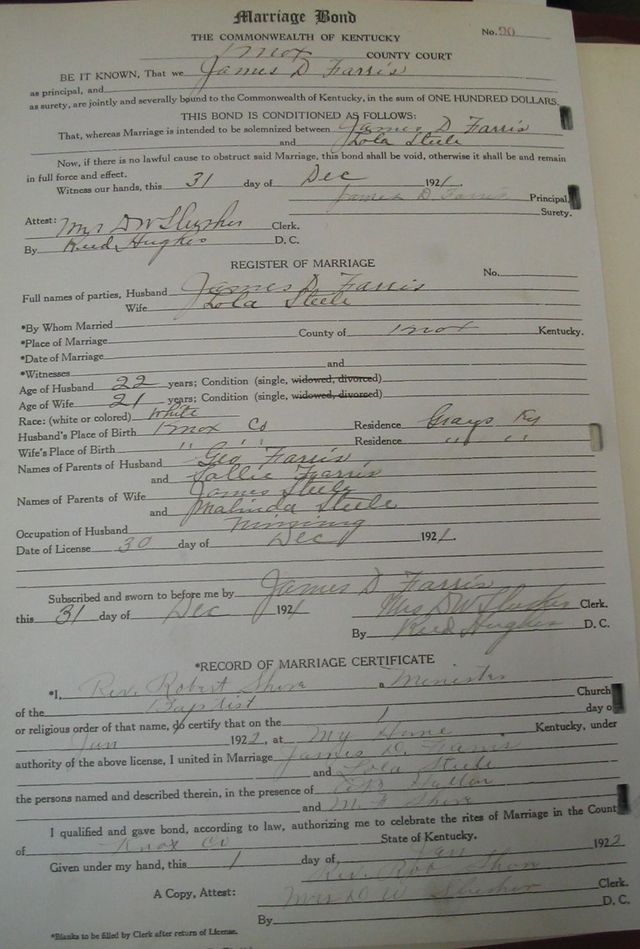 Marriage Bond
THE COMMONWEALTH OF KENTUCKY No. 90
Knox COUNTY COURT
BE IT KNOWN, That we James D Farris
as principal, and
as surety, are jointly and severally bound to the Commonwealth of Kentucky, in the sum of ONE HUNDRED DOLLARS.
THIS BOND IS CONDITIONED AS FOLLOWS:
That, whereas Marriage is intended to be solemnized between James D Farris
and Lola Steele
Now, if there is no lawful cause to obstruct said Marriage, this bond shall be void, otherwise it shall be and remain
in full force and effect.
Witness our hands, this 31 day of Dec 1921.
James D Farris Principal,
Surety.
Attest: Mrs D W Slusher Clerk.
By Reed Hughes D. C.
REGISTER OF MARRIAGE
No.
Full names of parties, Husband James D. Farris
Wife Lola Steele
*By Whom Married
*Place of Marriage County of Knox Kentucky.
*Date of Marriage
*Witnesses and
Age of Husband 22 years; Condition (single, widowed, divorced)
Age of Wife 21 years; Condition (single, widowed, divorced)
Race: (white or colored) White
Husband's Place of Birth Knox Co Residence Grays Ky
Wife's Place of Birth " " Residence " "
Names of Parents of Husband Geo Farris
and Sallie Farris
Names of Parents of Wife James Steele
and Malinda Steele
Occupation of Husband Mining
Date of License 30 day of Dec 1921.
Subscribed and sworn to before me by James D Farris
this 31 day of Dec 1921 Mrs D W Slusher Clerk.
By Reed Hughes D. C.
*RECORD OF MARRIAGE CERTIFICATE
*I, Rev. Robert a Minister
of the Baptist Church
or religious order of that name, do certify that on the 1 day o
Jan 1922, at My Home Kentucky, under
authority of the above license, I united in Marriage James D. Farris
and Lola Steele
the persons named and described therein, in the presence of
and
I qualified and gave bond, according to law, authorizing me to celebrate the rites of Marriage in the Count
of Knox Co State of Kentucky.
Given under my hand, this 1 day of Jan 1922
Rev. Rob
A Copy, Attest: Mrs D W Slusher Clerk.
By D. C.
*Blanks to be filled by Clerk after return of License.